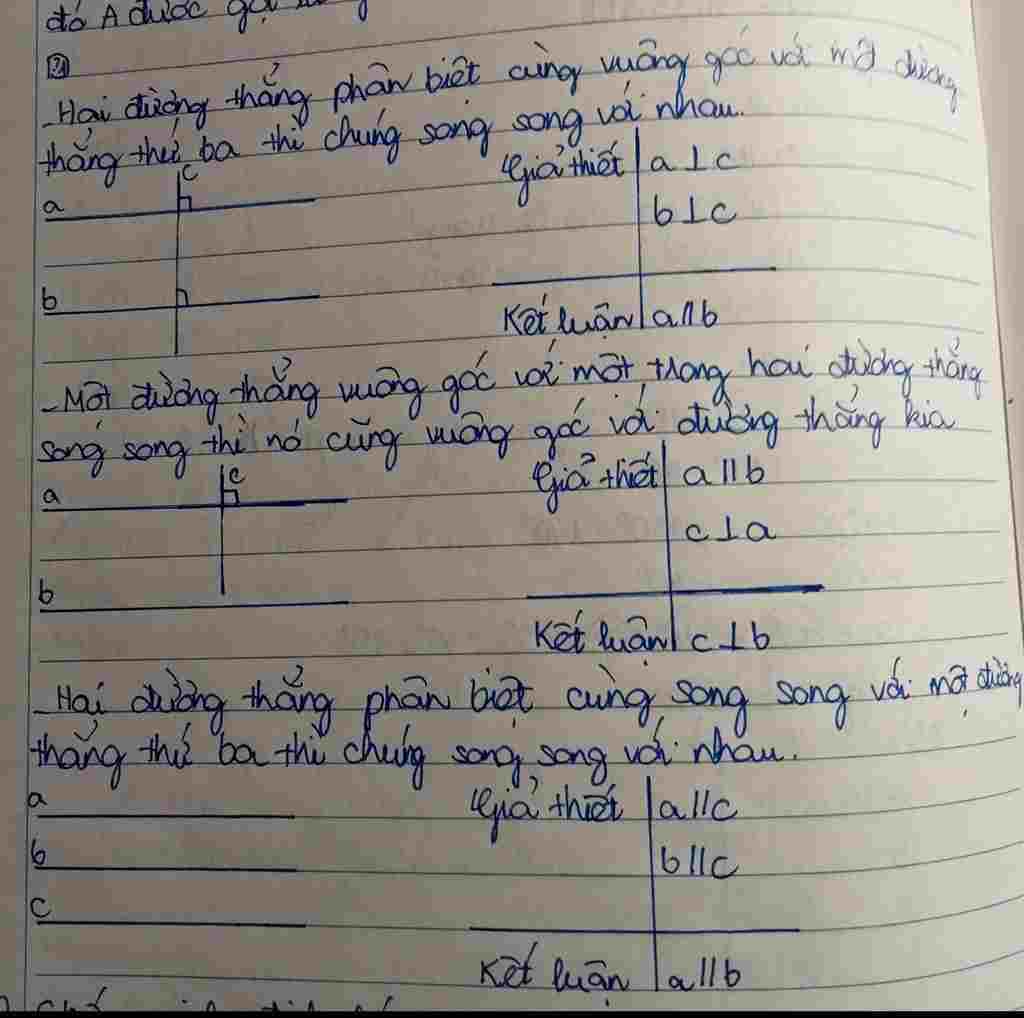 đó A được gọi
2
- Hai đường thẳng phân biệt cùng vuông góc với một đường
thẳng thứ ba thì chúng song song với nhau.
c
a
b
Giả thiết a ⊥ c
b ⊥ c
Kết luận a // b
- Một đường thẳng vuông góc với một trong hai đường thẳng
song song thì nó cũng vuông góc với đường thẳng kia
c
a
b
Giả thiết a // b
c ⊥ a
Kết luận c ⊥ b
- Hai đường thẳng phân biệt cùng song song với một đường
thẳng thứ ba thì chúng song song với nhau.
a
b
c
Giả thiết a // c
b // c
Kết luận a // b